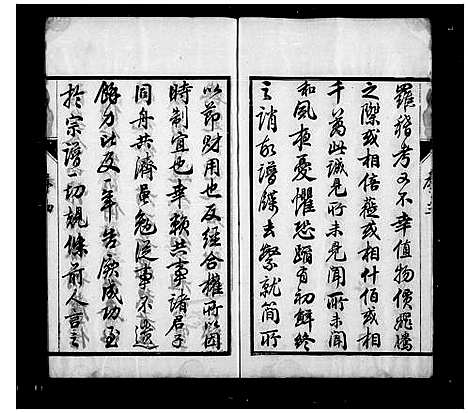 羅稽考又不幸值物價飛騰
之際或相倍蓰或相什佰或相
千萬此誠見所未見聞所未聞
和風夜憂懼恐蹈有初鮮終
之誚故譜牒去繁就簡所
以節財用也反經合權所以因
時制宜也幸賴共事諸君子
同舟共濟黽勉從事不遺
餘力比及一年告厥成功至
於宗譜一切規條前人言之